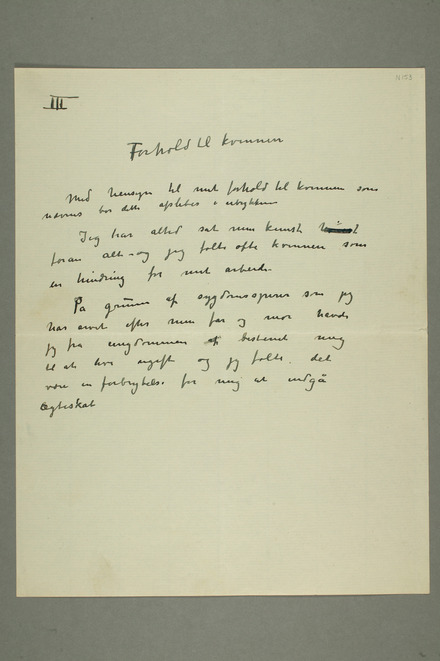 N 153
III
Forhold til kvinnen
Med hensyn til mit forhold til kvinnen som
nævnes bør dette afslebes i utrykken
Jeg har altid sat min kunst
foran alt – og jeg følte ofte kvinnen som
en hindring for mit arbeide
På grunn af sygdomsspirer som jeg
har arvet efter min far og mor havde
jeg fra ungdommen bestemt mig
til at leve ugift og jeg følte det
være en forbrytelse for mig at indgå
Ægteskab